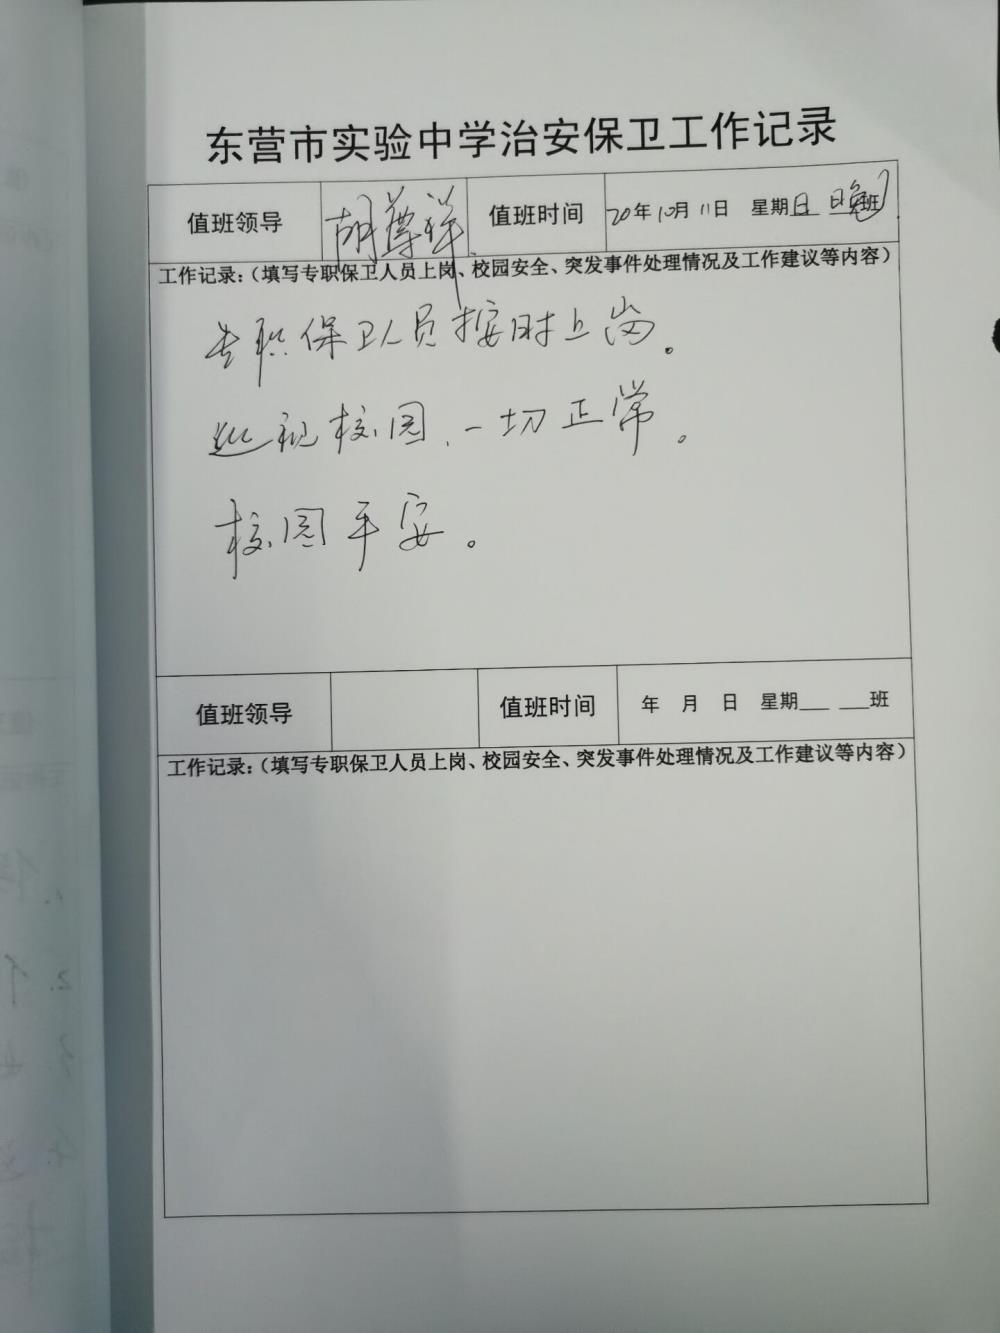 东营市实验中学治安保卫工作记录
值班领导 胡尊祥 值班时间 20年10月11日 星期日 晚班
工作记录：（填写专职保卫人员上岗、校园安全、突发事件处理情况及工作建议等内容）
专职保卫人员按时上岗。
巡视校园、一切正常。
校园平安。
值班领导 值班时间 年 月 日 星期___ ___班
工作记录：（填写专职保卫人员上岗、校园安全、突发事件处理情况及工作建议等内容）